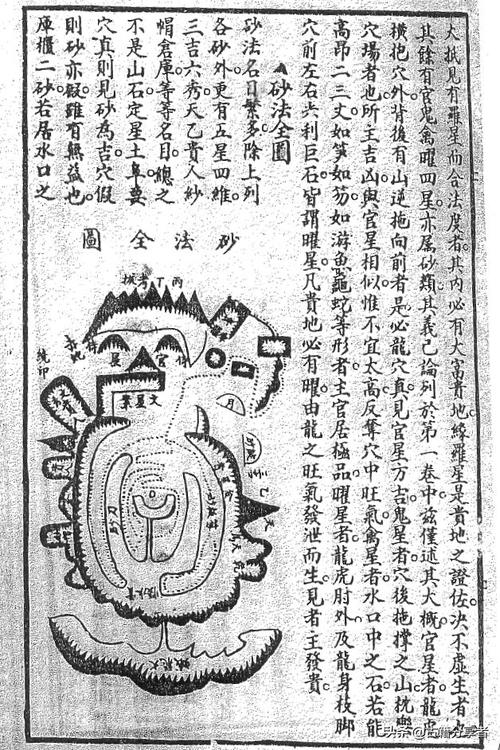 大抵見有羅星而合法度者其内必有大富貴地緣羅星是貴地之證佐决不虛生者也
其餘有官鬼禽曜四星亦属砂類其義已論列於第一卷中茲僅述其大概官星者龍虎
橫抱穴外背後有山逆拖向前者是必龍穴真見官星方吉鬼星者穴後拖撑之山抚樂
穴塲者也所主吉凶與官星相似惟不宜太高反奪穴中旺氣禽星者水口中之石若能
高昂二三丈如笋如笏如游魚龜蛇等形者主官居極品曜星者龍虎肘外及龍身枝脚
穴前左右尖利巨石皆謂曜星凡貴地必有曜由龍之旺氣發泄而生見者主發貴
砂法全圖
砂法名目繁多除上列
各砂外更有五星四維
三吉六秀天乙貴人紗
帽倉庫等等名目總之
不是山石定星土阜要
穴真則見砂為吉穴假
則砂亦凝雖有無益也
庫櫃二砂若居水口之
砂法全圖
丙丁考械
官星
文星案
月
乙
头条 @古籍分享者